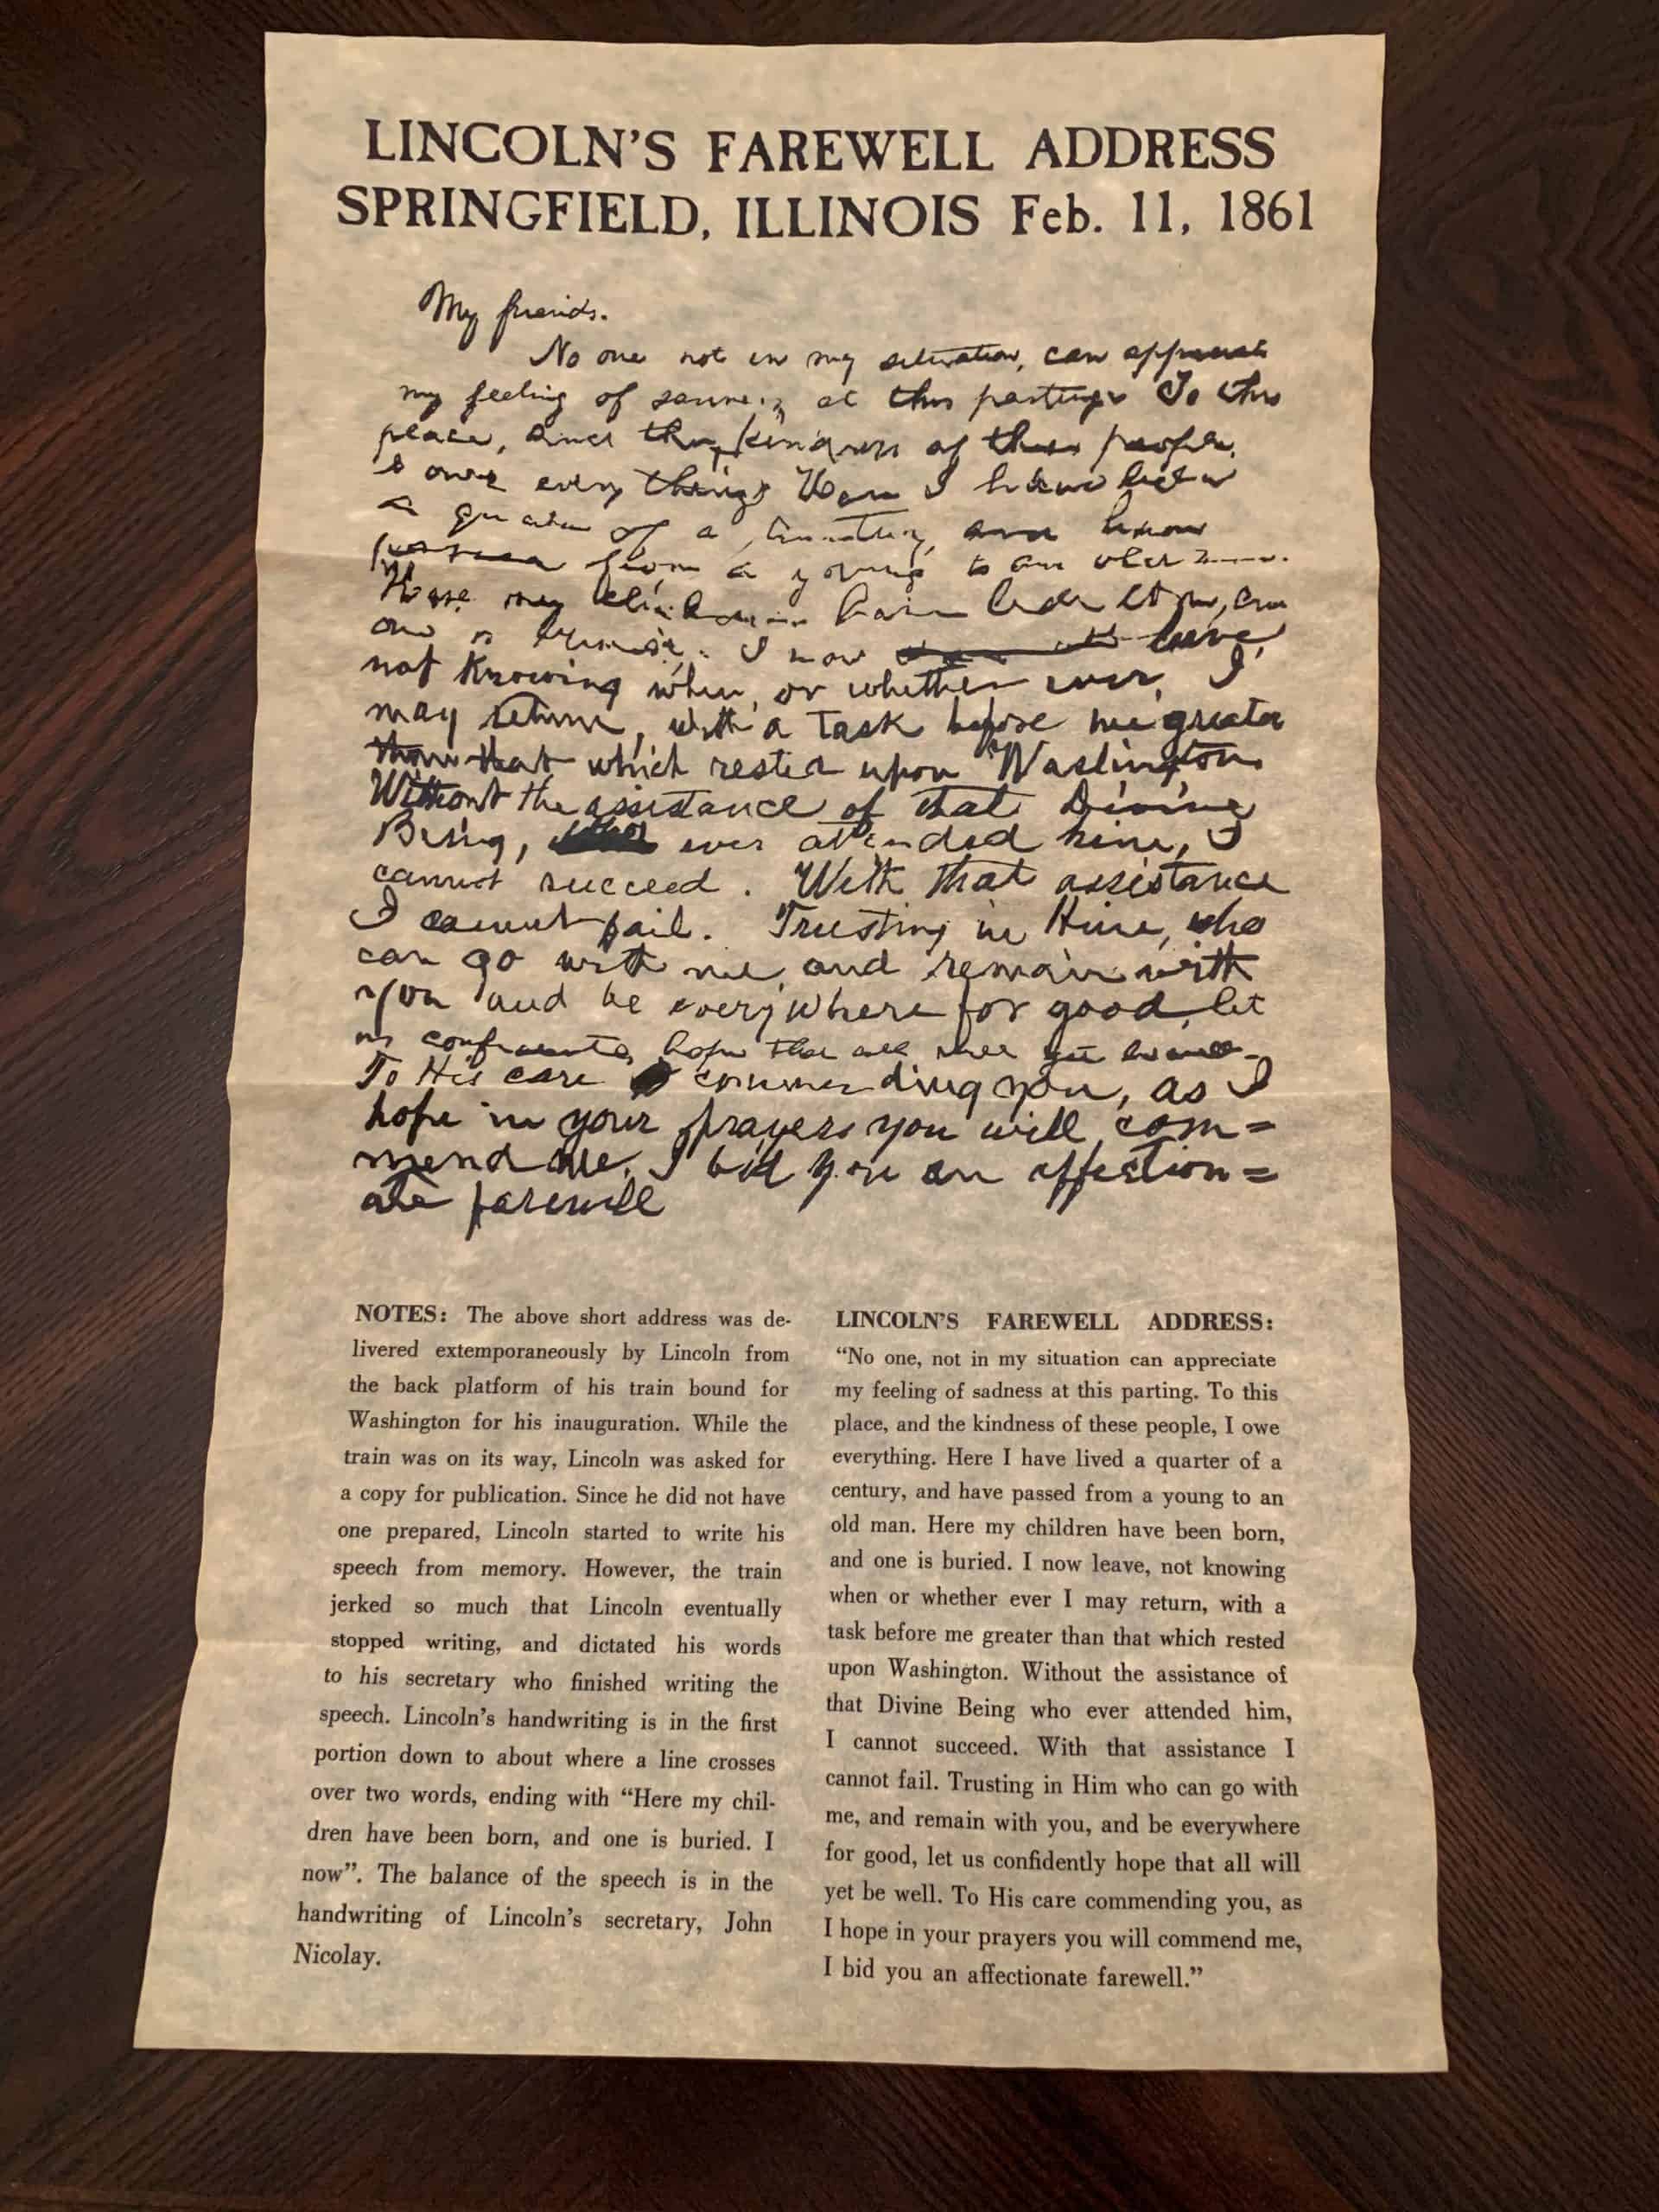 LINCOLN'S FAREWELL ADDRESS
SPRINGFIELD, ILLINOIS Feb. 11, 1861
My friends.
No one not in my situation, can appreciate
my feeling of sadness at this parting. To this
place, and the kindness of these people,
I owe every thing. Here I have lived
a quarter of a century, and have
passed from a young to an old man.
Here my children have been born, and
one is buried. I now leave,
not knowing when, or whether ever, I
may return, with a task before me greater
than that which rested upon Washington.
Without the assistance of that Divine
Being, ever attended him, I
cannot succeed. With that assistance
I cannot fail. Trusting in Him, who
can go with me, and remain with
you and be everywhere for good, let
us confidently hope that all will yet be well
To His care commending you, as I
hope in your prayers you will com=
mend me, I bid you an affection=
ate farewell
NOTES: The above short address was de-
livered extemporaneously by Lincoln from
the back platform of his train bound for
Washington for his inauguration. While the
train was on its way, Lincoln was asked for
a copy for publication. Since he did not have
one prepared, Lincoln started to write his
speech from memory. However, the train
jerked so much that Lincoln eventually
stopped writing, and dictated his words
to his secretary who finished writing the
speech. Lincoln's handwriting is in the first
portion down to about where a line crosses
over two words, ending with "Here my chil-
dren have been born, and one is buried. I
now". The balance of the speech is in the
handwriting of Lincoln's secretary, John
Nicolay.
LINCOLN'S FAREWELL ADDRESS:
"No one, not in my situation can appreciate
my feeling of sadness at this parting. To this
place, and the kindness of these people, I owe
everything. Here I have lived a quarter of a
century, and have passed from a young to an
old man. Here my children have been born,
and one is buried. I now leave, not knowing
when or whether ever I may return, with a
task before me greater than that which rested
upon Washington. Without the assistance of
that Divine Being who ever attended him,
I cannot succeed. With that assistance I
cannot fail. Trusting in Him who can go with
me, and remain with you, and be everywhere
for good, let us confidently hope that all will
yet be well. To His care commending you, as
I hope in your prayers you will commend me,
I bid you an affectionate farewell."